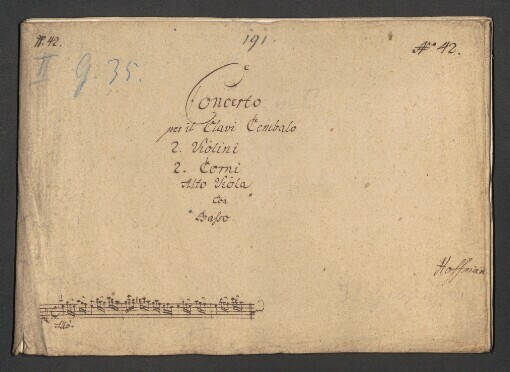 N. 42.
191.
No 42.
II
G. 35.
Concerto
per il Clavi Cembalo
2. Violini
2. Corni
Alto Viola
Con
Basso
Hoffman
Allo.